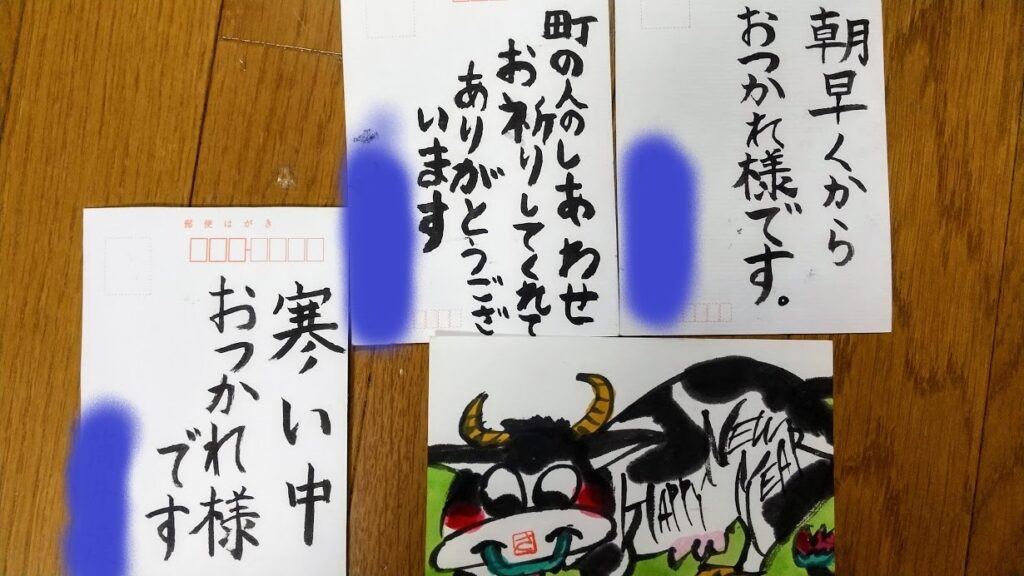 朝早くから
おつかれ様です。
町の人のしあわせ
お祈りしてくれて
ありがとうござ
います
郵便はがき
寒い中
おつかれ様
です
HAPPY
NEW
YEAR